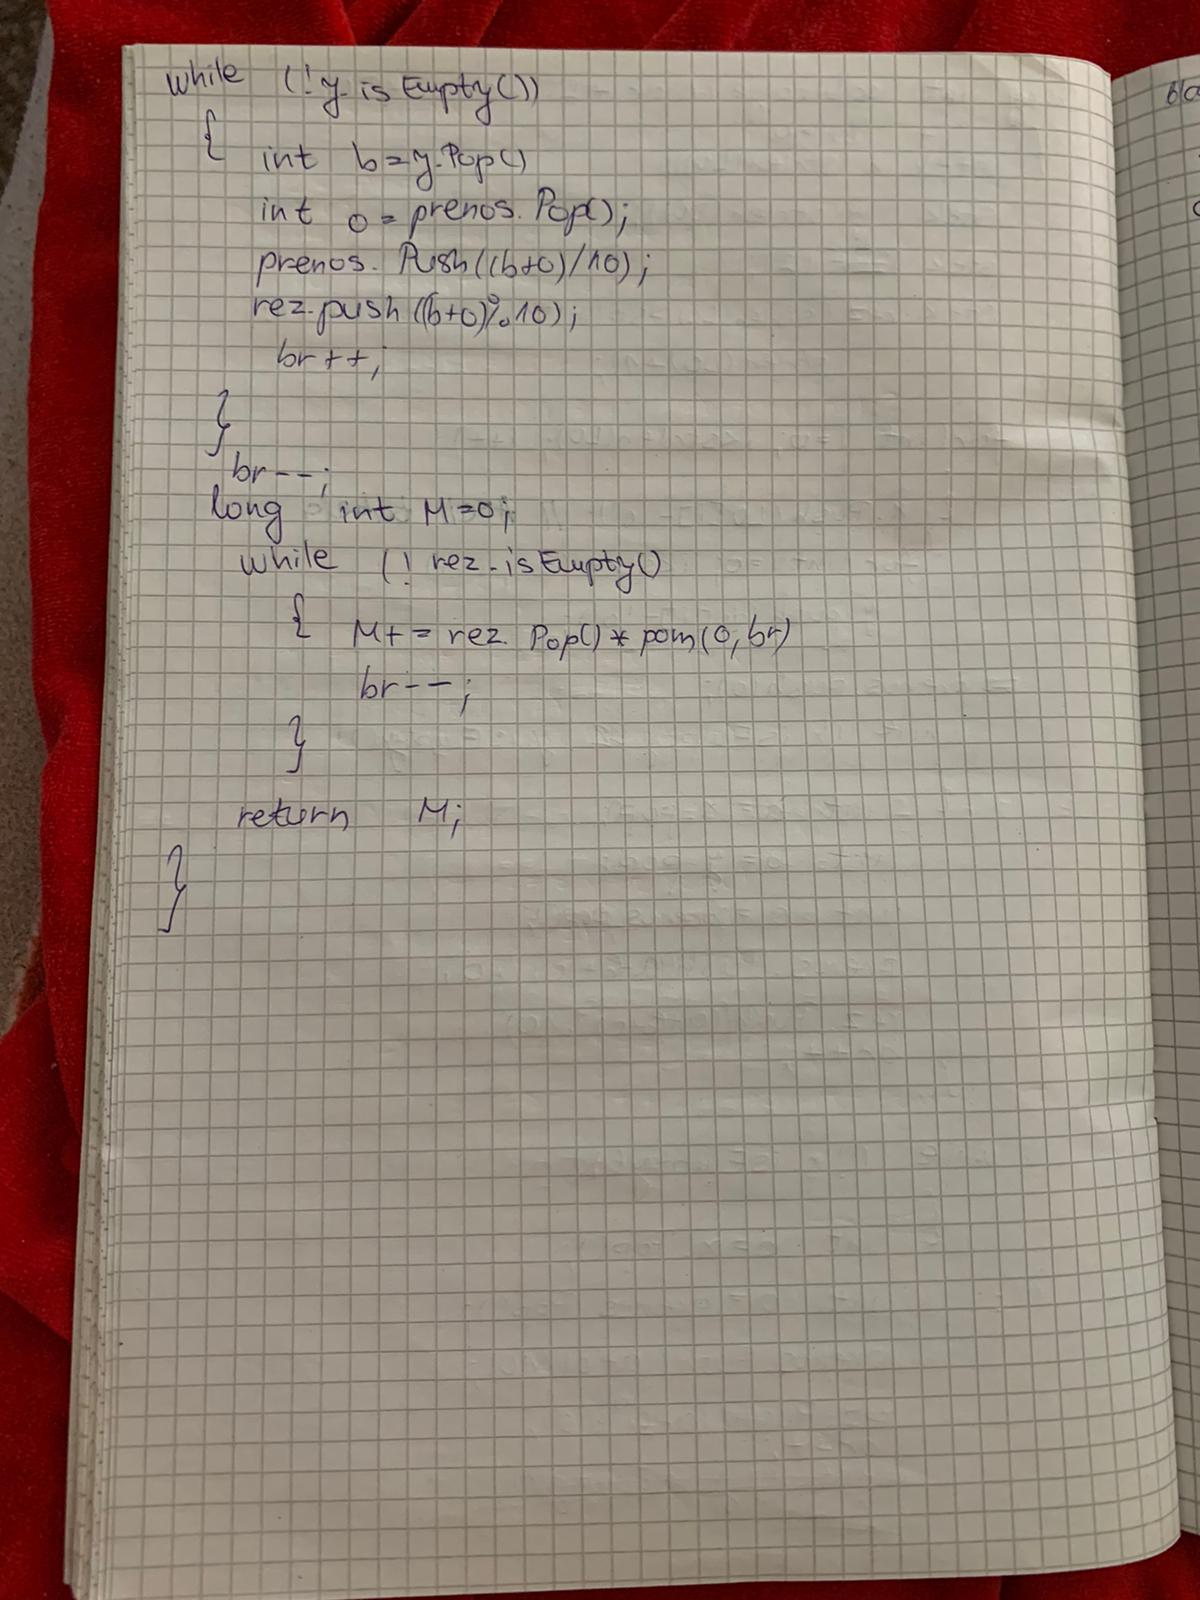 while (!y.isEmpty())
{ int b=y.Pop()
int o = prenos.Pop();
prenos.Push((b+o)/10);
rez.push((b+o)%10);
br++;
}
br--;
long int M=0;
while (! rez.isEmpty()
{ M+= rez.Pop()*pom(0,br)
br--;
}
return M;
}